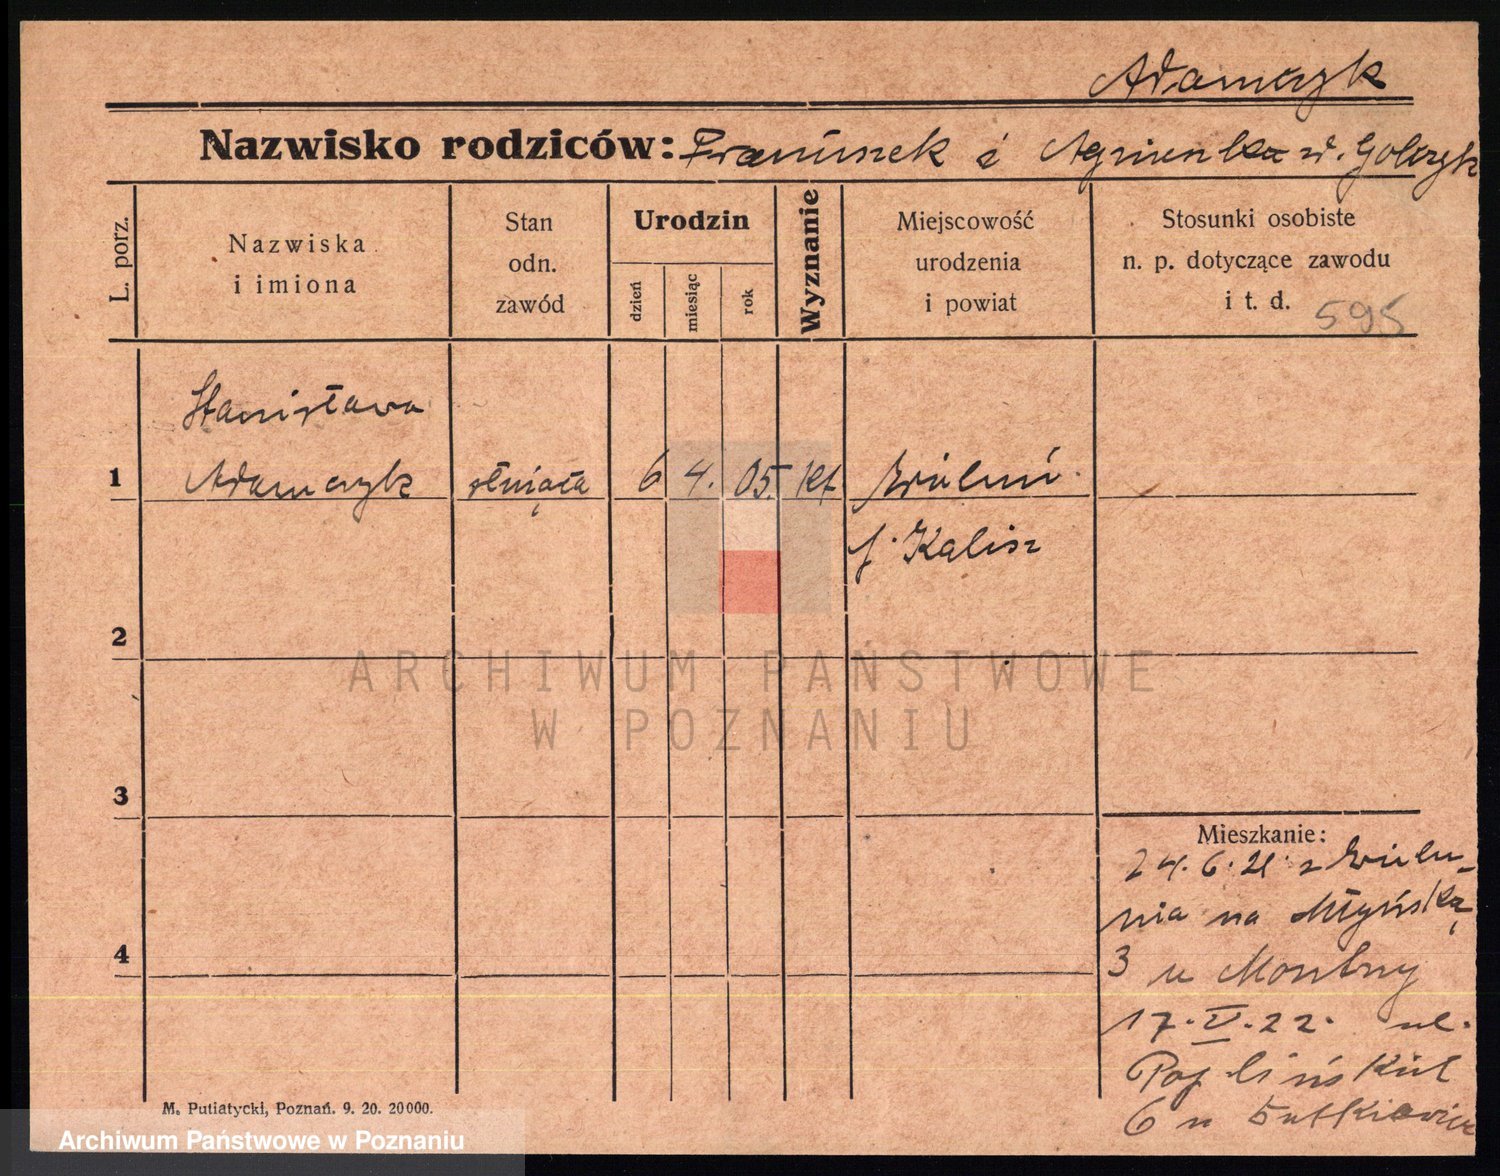 Adamczyk
Nazwisko rodziców: Franciszek i Agnieszka z d. Golczyk
L. porz.
Nazwiska
i imiona
Stan
odn.
zawód
Urodzin
dzień
miesiąc
rok
Wyznanie
Miejscowość
urodzenia
i powiat
Stosunki osobiste
n. p. dotyczące zawodu
i t. d.
595
Stanisława
1 Adamczyk służąca 6 4. 05. kt Wieluń
p. Kalisz
2
ARCHIWUM PAŃSTWOWE
W POZNANIU
3
Mieszkanie:
24.6.21 z Wielu-
nia na Młyńską
4
3 u
17.V.22. ul.
Poplińskich
6 u
M. Putiatycki, Poznań. 9. 20. 20000.
Archiwum Państwowe w Poznaniu